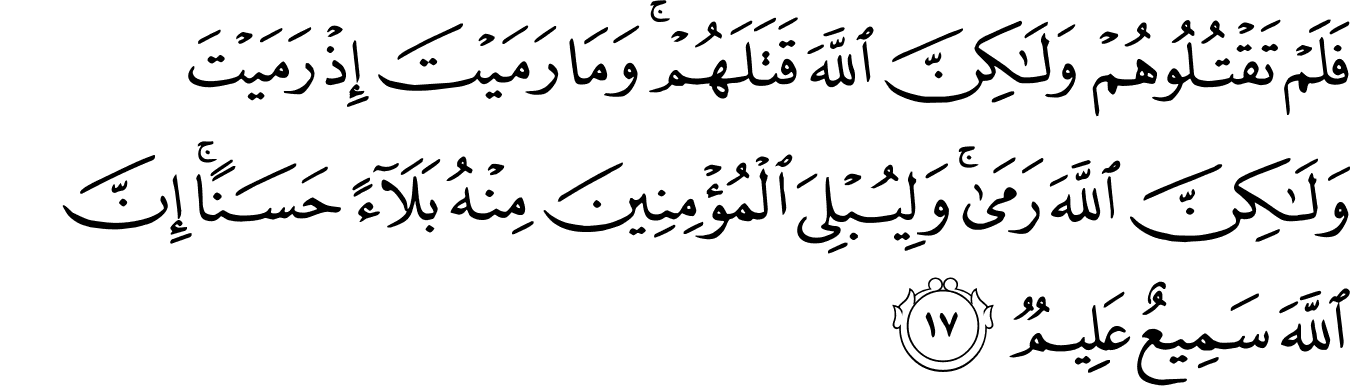 فَلَمْ تَقْتُلُوهُمْ وَلَـٰكِنَّ ٱللَّهَ قَتَلَهُمْ ۚ وَمَا رَمَيْتَ إِذْ رَمَيْتَ
وَلَـٰكِنَّ ٱللَّهَ رَمَىٰ ۚ وَلِيُبْلِىَ ٱلْمُؤْمِنِينَ مِنْهُ بَلَآءً حَسَنًا ۚ إِنَّ
ٱللَّهَ سَمِيعٌ عَلِيمٌ ١٧